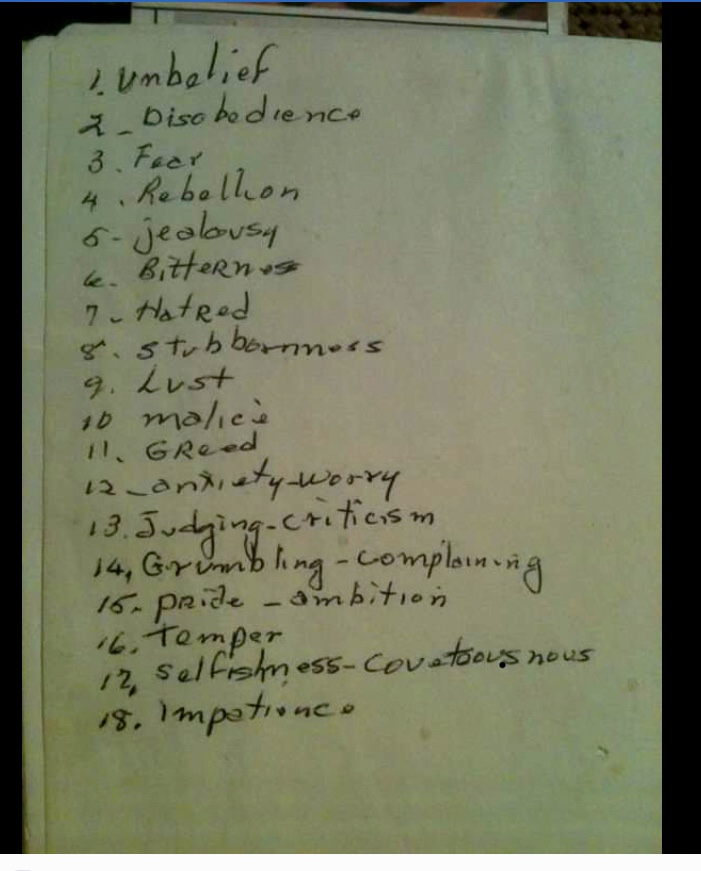 1. Unbelief
2 - Disobedience
3. Fear
4. Rebellion
5 - jealousy
6 - Bitternes
7 - HatRed
8. stubbornness
9. Lust
10 malice
11. GReed
12 - anxiety-worry
13. Judging-criticism
14, Grumbling - complaining
15 - pRide - ambition
16. Temper
17, selfishness-covetoousnous
18. Impatience